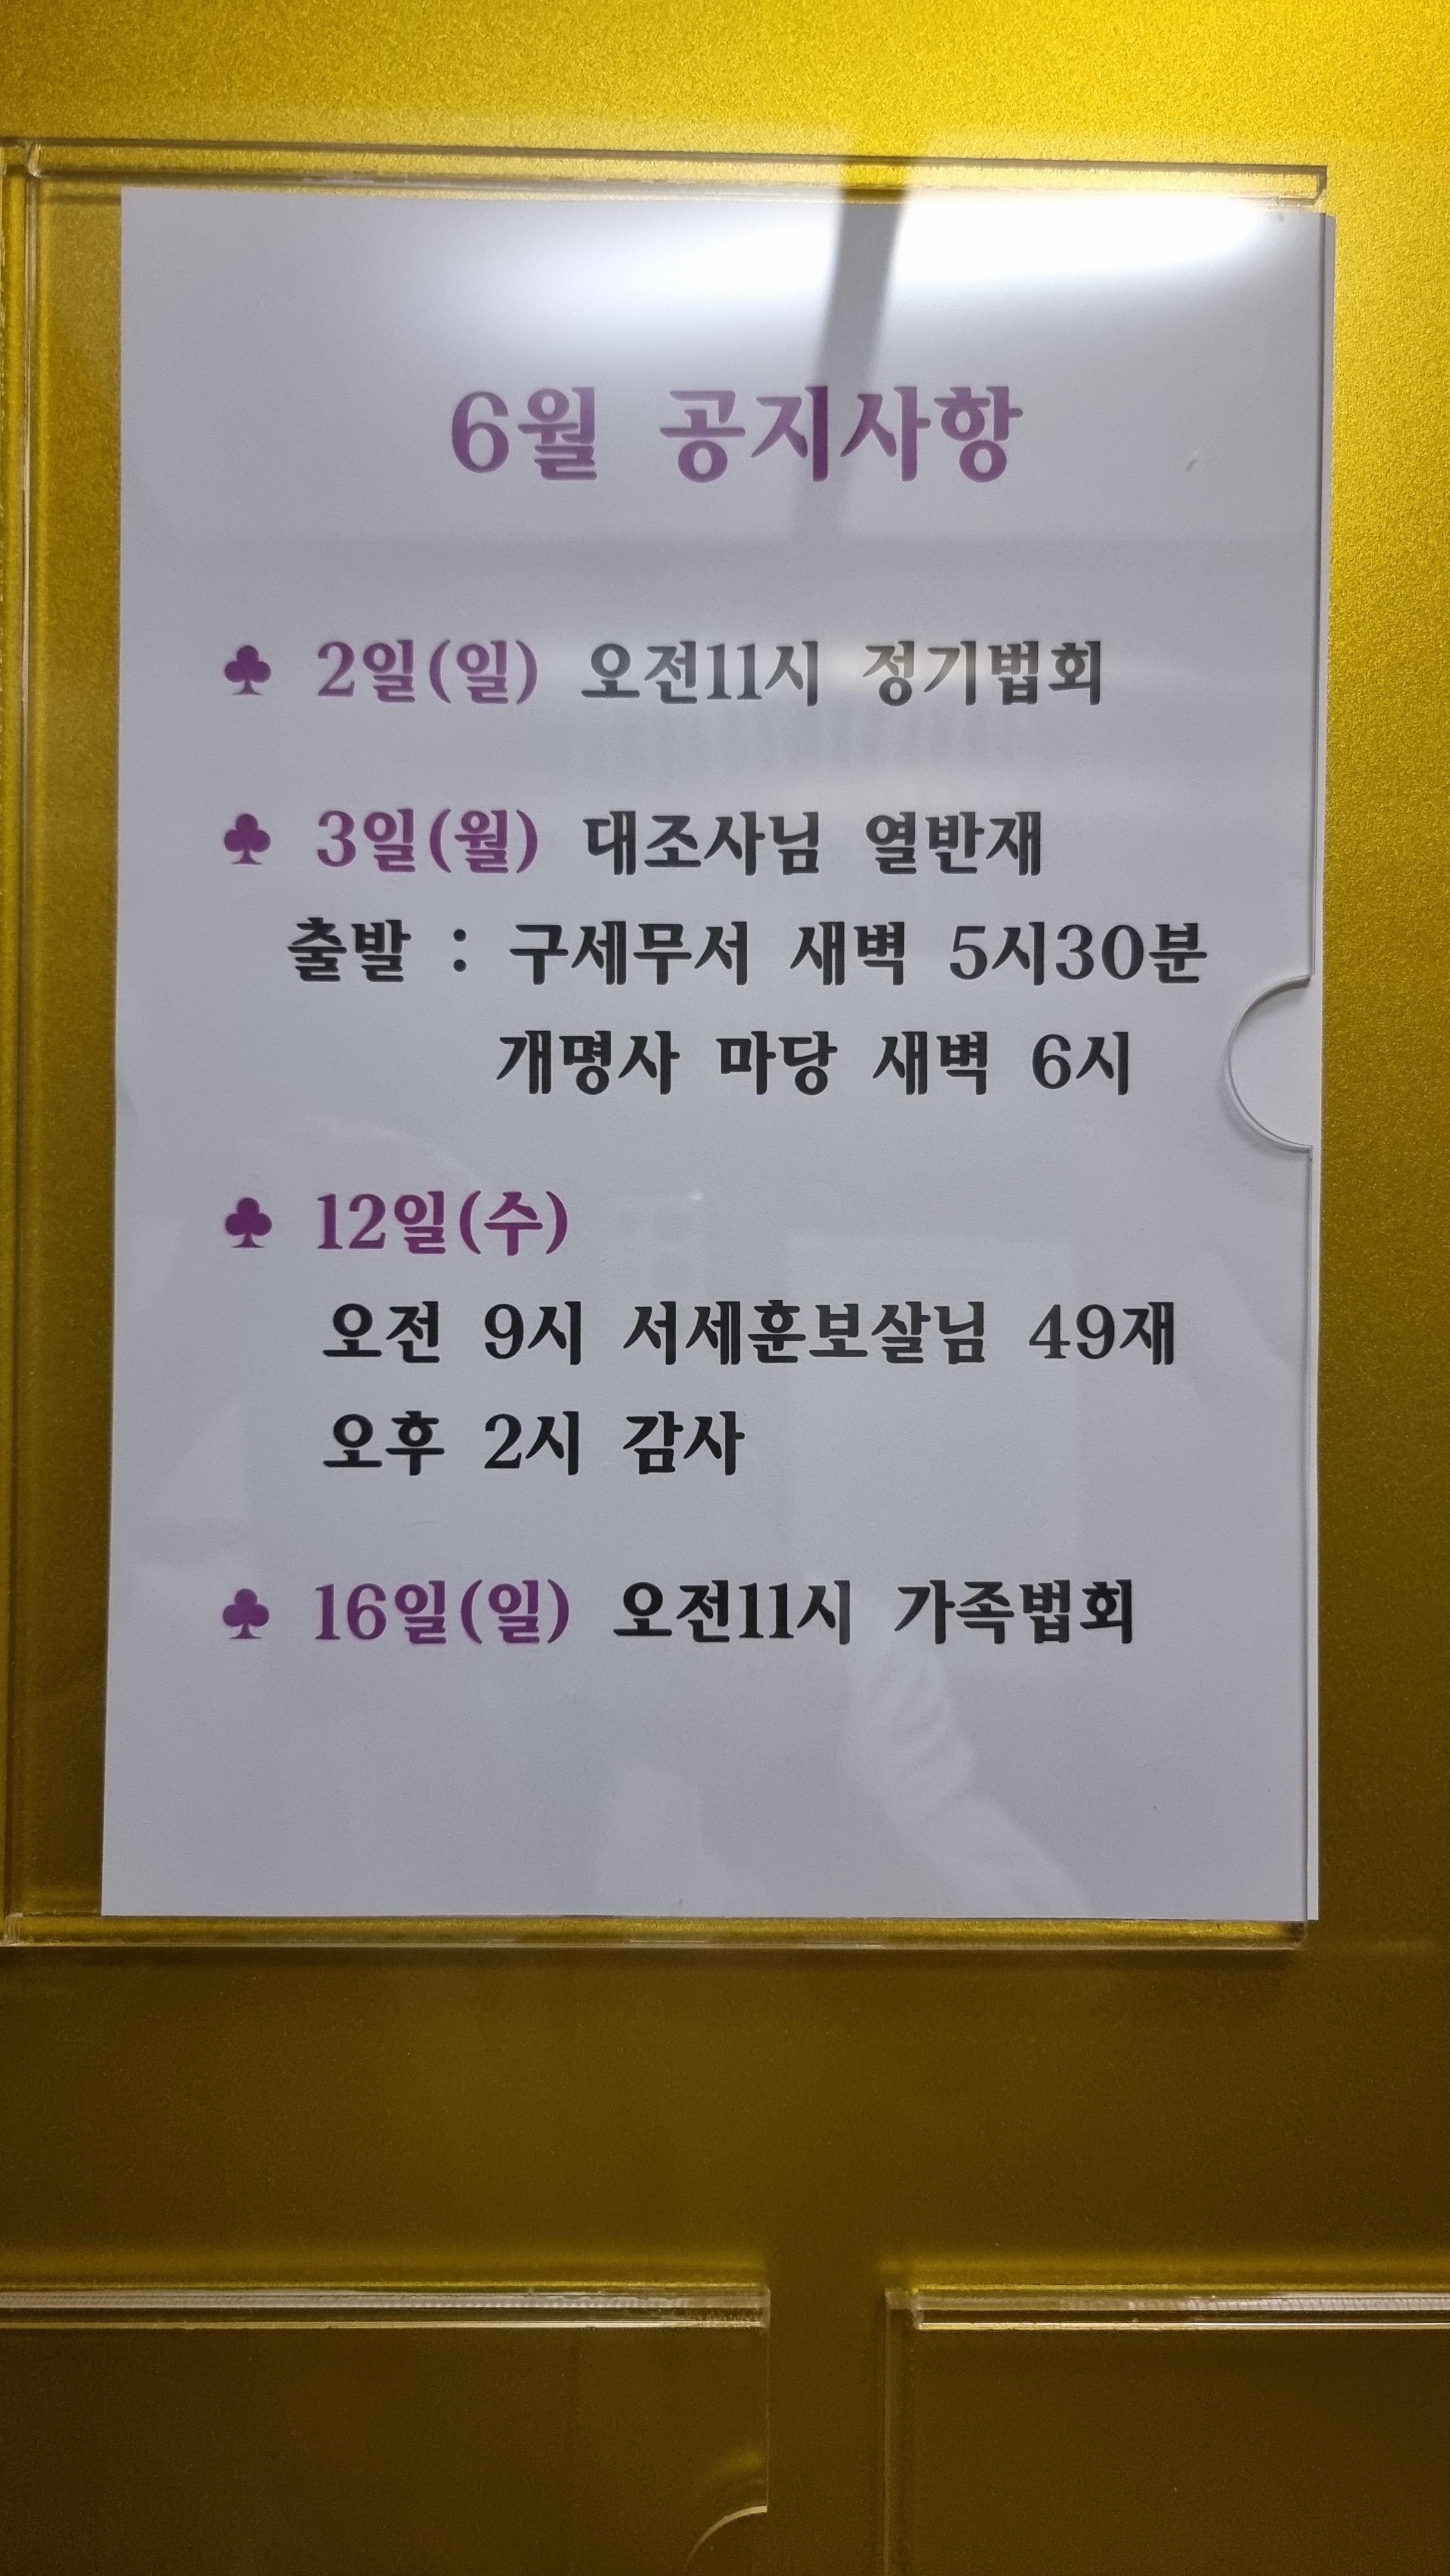 6월 공지사항
♣ 2일(일) 오전11시 정기법회
♣ 3일(월) 대조사님 열반재
출발 : 구세무서 새벽 5시30분
개명사 마당 새벽 6시
♣ 12일(수)
오전 9시 서세훈보살님 49재
오후 2시 감사
♣ 16일(일) 오전11시 가족법회